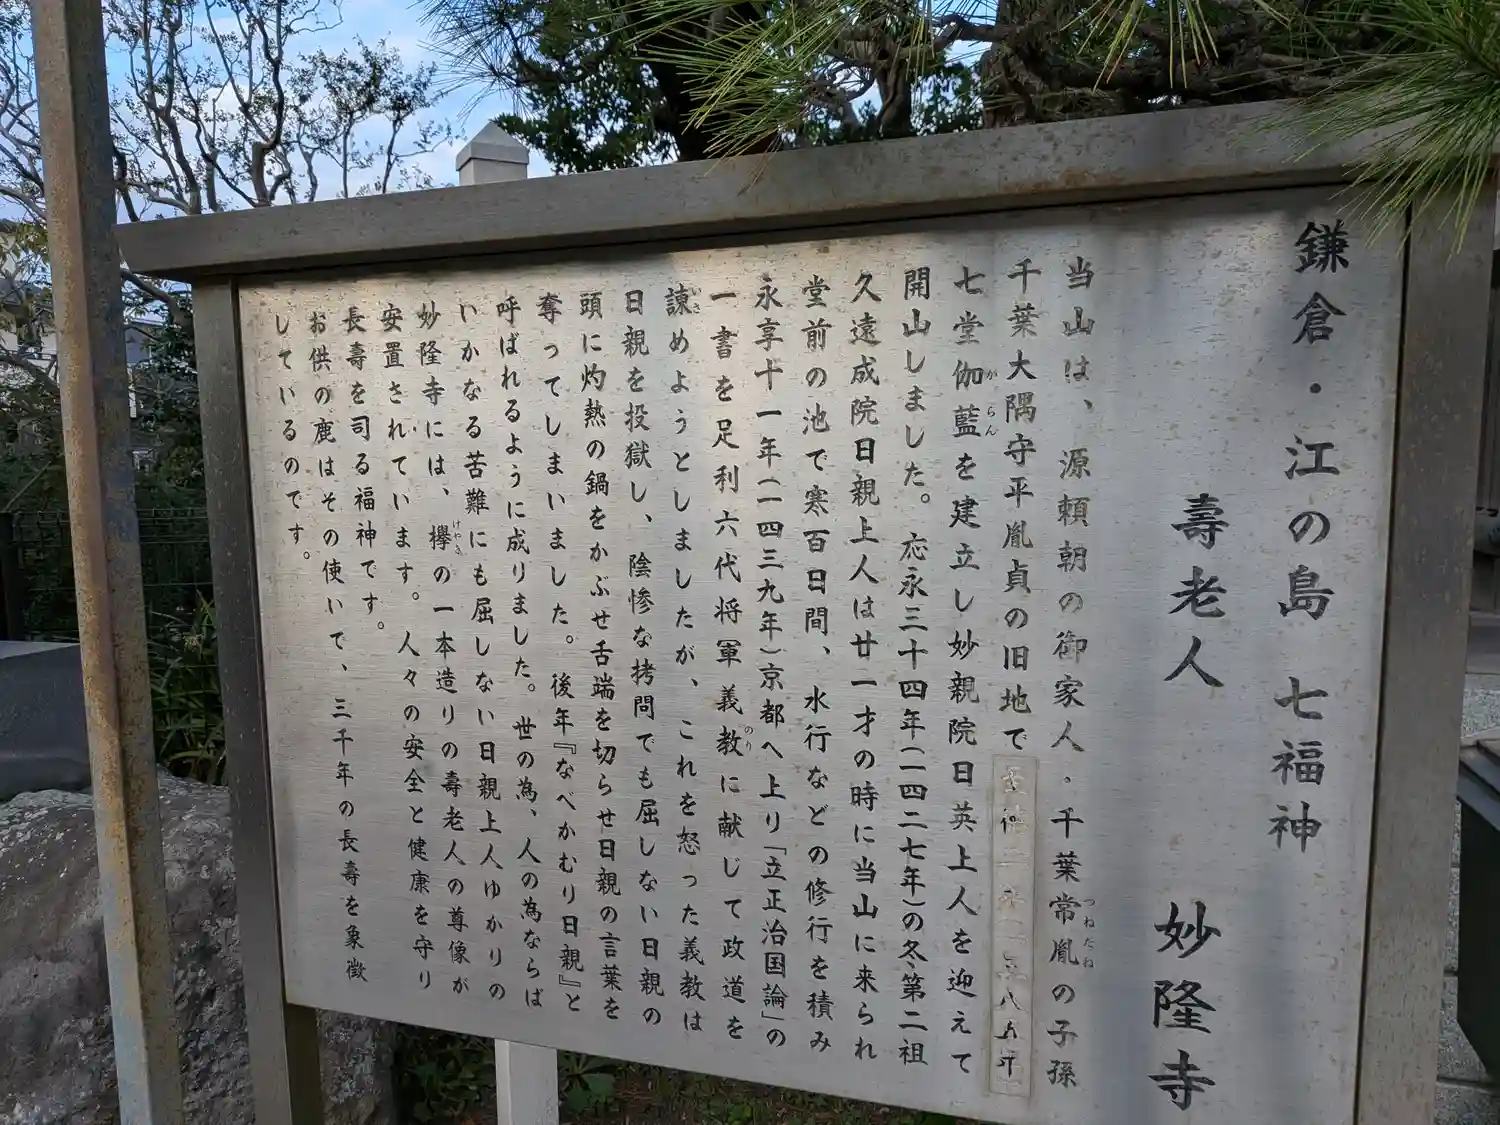 鎌倉・江の島 七福神
壽老人 妙隆寺
当山は、源頼朝の御家人・千葉常胤の子孫
つねたね
千葉大隅守平胤貞の旧地で
七堂伽藍を建立し妙親院日英上人を迎えて
がらん
開山しました。応永三十四年(一四二七年)の冬第二祖
久遠成院日親上人は廿一才の時に当山に来られ
堂前の池で寒百日間、水行などの修行を積み
永享十一年(一四三九年)京都へ上り「立正治国論」の
一書を足利六代将軍義教に献じて政道を
のり
諌めようとしましたが、これを怒った義教は
いさ
日親を投獄し、陰惨な拷問でも屈しない日親の
頭に灼熱の鍋をかぶせ舌端を切らせ日親の言葉を
奪ってしまいました。後年『なべかむり日親』と
呼ばれるように成りました。世の為、人の為ならば
いかなる苦難にも屈しない日親上人ゆかりの
妙隆寺には、欅の一本造りの壽老人の尊像が
けやき
安置されています。人々の安全と健康を守り
長壽を司る福神です。
お供の鹿はその使いで、三千年の長壽を象徴
しているのです。